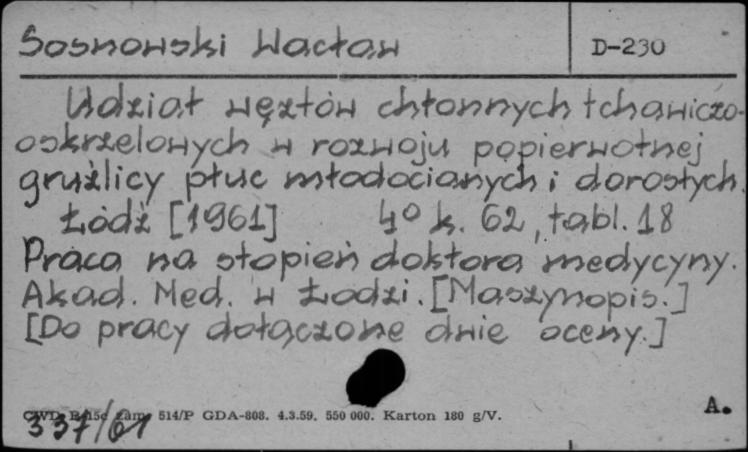 Sosnowski Wacław D-230
Udział węzłów chłonnych tchawiczo-
oskrzelowych w rozwoju popierwotnej
gruźlicy płuc młodocianych i dorosłych.
Łódź [1961] 4° k. 62, tabl. 18
Praca na stopień doktora medycyny.
Akad. Med. w Łodzi. [Maszynopis.]
[Do pracy dołączone dwie oceny.]
CWD zam. 514/P GDA-808. 4.3.59. 550 000. Karton 180 g/V.
337/61
A.